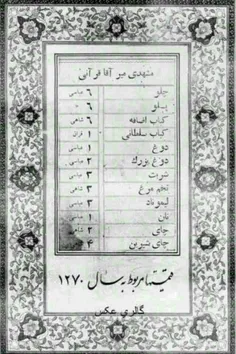 مشهدی میر آقا قرآنی
چلو ۶ عباسی
پلو ۶ "
کباب اضافه ۶ شاهی
کباب سلطانی ۱ قران
دوغ ۱ عباسی
دوغ بزرگ ۲ عباسی
شربت ۳ عباسی
تخم مرغ ۳ شاهی
لیموناد ۳ عباسی
نان ۱ عباسی
چای ۳ شاهی
چای شیرین ۴
قیمتها مربوط به سال ۱۲۷۰
گالری عکس